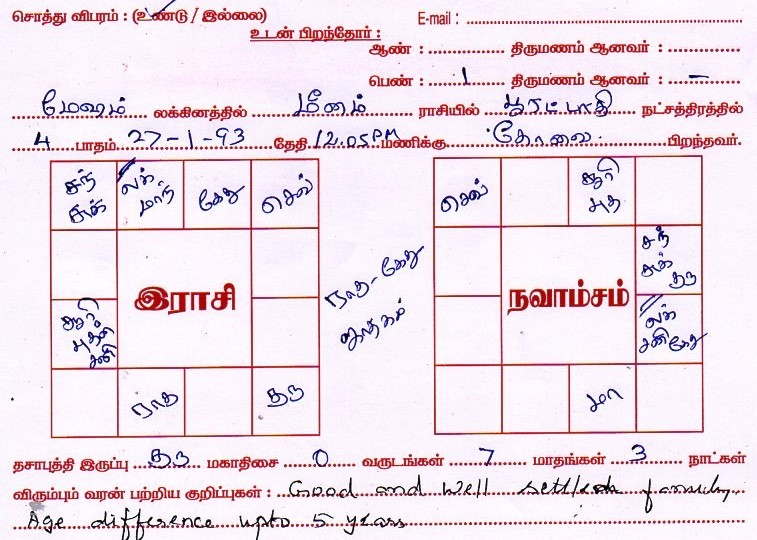 சொத்து விபரம் : (உண்டு / இல்லை)
E-mail :
உடன் பிறந்தோர் :
ஆண் : திருமணம் ஆனவர் :
பெண் : 1 திருமணம் ஆனவர் : –
மேஷம் லக்கினத்தில் மீனம் ராசியில் பூரட்டாதி நட்சத்திரத்தில்
4 பாதம் 27-1-93 தேதி 12.05 PM மணிக்கு கோவை பிறந்தவர்.
சந் சுக்
லக் மாந்
கேது
செவ்
சூரி புதன் சனி
இராசி
ராகு
குரு
ராகு-கேது ஜாதகம்
செவ்
சூரி புத
சந் சுக் குரு
நவாம்சம்
லக் சனி கேது
மா
தசாபுத்தி இருப்பு குரு மகாதிசை 0 வருடங்கள் 7 மாதங்கள் 3 நாட்கள்
விரும்பும் வரன் பற்றிய குறிப்புகள் : Good and well settled family,
Age difference upto 5 years